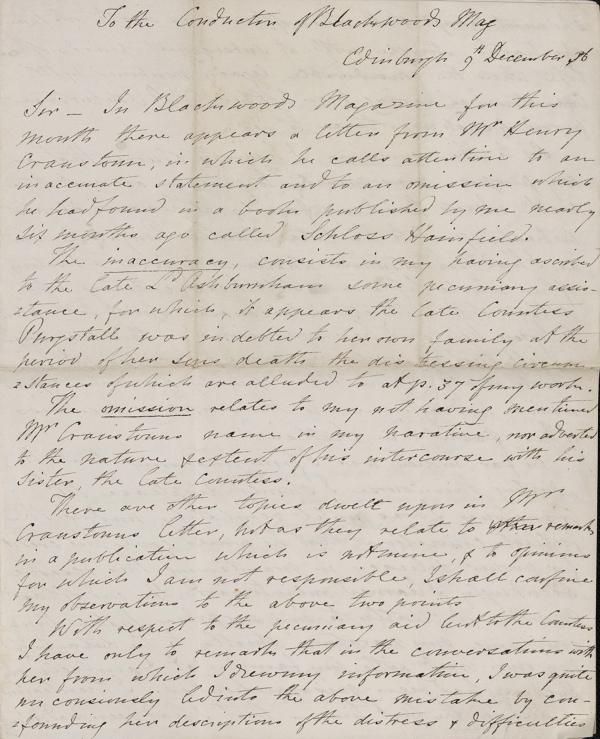 To the Conductor of Blackwoods Mag
Edinburgh 9th December 36
Sir — In Blackwoods Magazine for this
month there appears a letter from Mr Henry
Cranstoun, in which he calls attention to an
inaccurate statement and to an omission which
he had found in a book published by me nearly
six months ago called Schloss Hainfeld.
The inaccuracy, consists in my having ascribed
to the late Ld Ashburnham some pecuniary assis-
=tance, for which, it appears the late Countess
Purgstall was indebted to her own family at the
period of her sons death the distressing circum
=stances of which are alluded to at p. 37 of my work.
The omission relates to my not having mentioned
Mr Cranstouns name in my narative, nor adverted
to the nature & extent of his intercourse with his
Sister, the late Countess.
There are other topics dwelt upon in Mr
Cranstouns letter, but as they relate to remarks
in a publication which is not mine, & to opinions
for which I am not responsible, I shall confine
my observations to the above two points
With respect to the pecuniary aid lent to the Countess
I have only to remark that in the conversations with
her from which I drew my information, I was quite
unconsiously led into the above mistake by con-
=founding her descriptions of the distress & difficulties